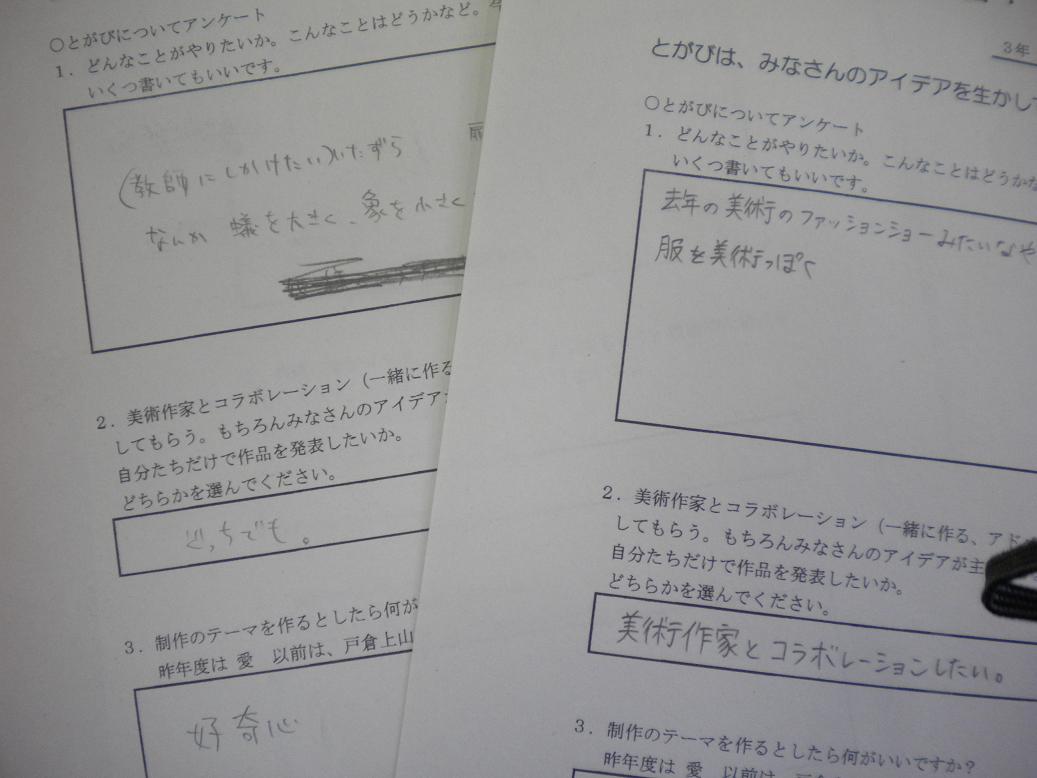 ○とがびについてアンケート
1．どんなことがやりたいか。こんなことはどうかなど。
いくつ書いてもいいです。
(教師にしかけたい)いたずら
なんか 蟻を大きく、象を小さく
2．美術作家とコラボレーション（一緒に作る
してもらう。もちろんみなさんのアイデア
自分たちだけで作品を発表したいか。
どちらかを選んでください。
どっちでも。
3．制作のテーマを作るとしたら何が
昨年度は 愛 以前は、戸倉上山
好奇心
3年
とがびは、みなさんのアイデアを生かして
○とがびについてアンケート
1．どんなことがやりたいか。こんなことはどうかな
いくつ書いてもいいです。
去年の美術のファッションショーみたいなや
服を美術っぽく
2．美術作家とコラボレーション（一緒に作る、アド
してもらう。もちろんみなさんのアイデアが主
自分たちだけで作品を発表したいか。
どちらかを選んでください。
美術作家とコラボレーションしたい。
3．制作のテーマを作るとしたら何がいいですか？
昨年度は 愛 以前は、戸